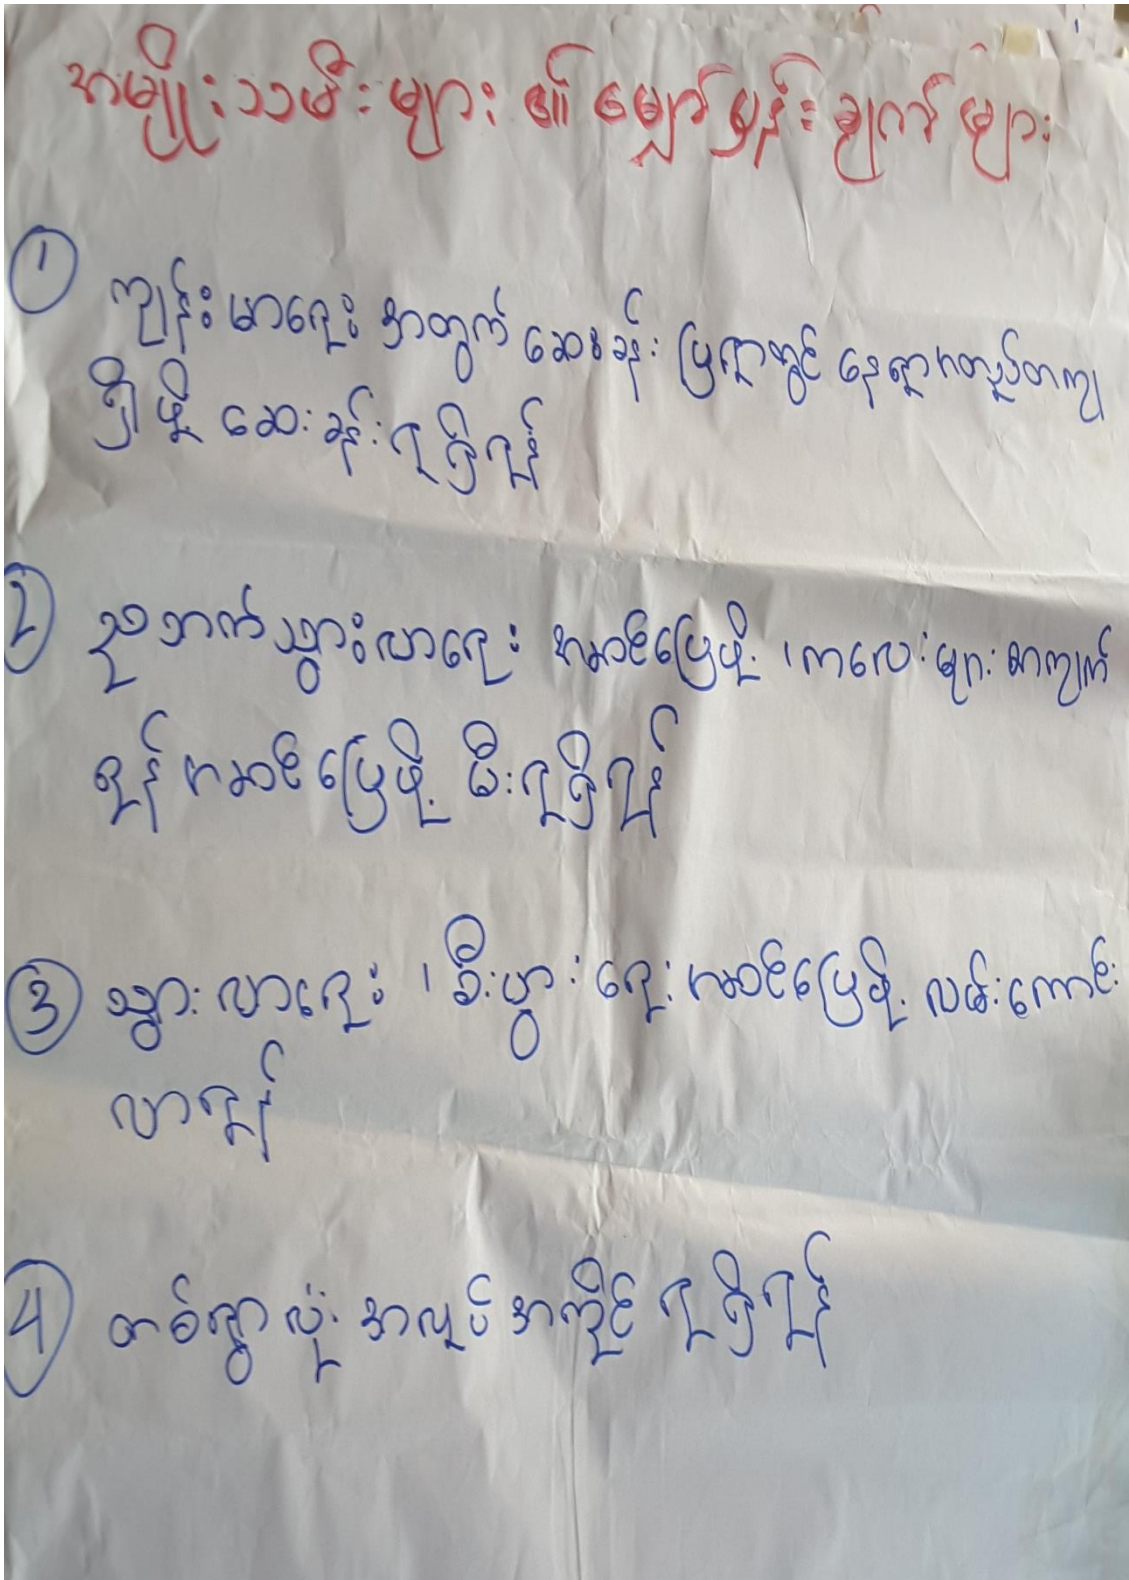 အမျိုးသမီးများ၏ မျှော်မှန်းချက်များ
①
ကျန်းမာရေး အတွက် ဆေးခန်း မြို့ရွာတွင် နေရာတကျ
ရှိဖို့ ဆေးခန်းရရှိရန်
2
ညဘက်သွားလာရေး အဆင်ပြေဖို့၊ ကလေးများ စာကျက်
ရန် အဆင်ပြေဖို့ မီးရရှိရန်
③
သွားလာရေး၊ စီးပွားရေး အဆင်ပြေဖို့ လမ်းကောင်း
လာရန်
4
တစ်ရွာလုံး အလုပ်အကိုင် ရရှိရန်